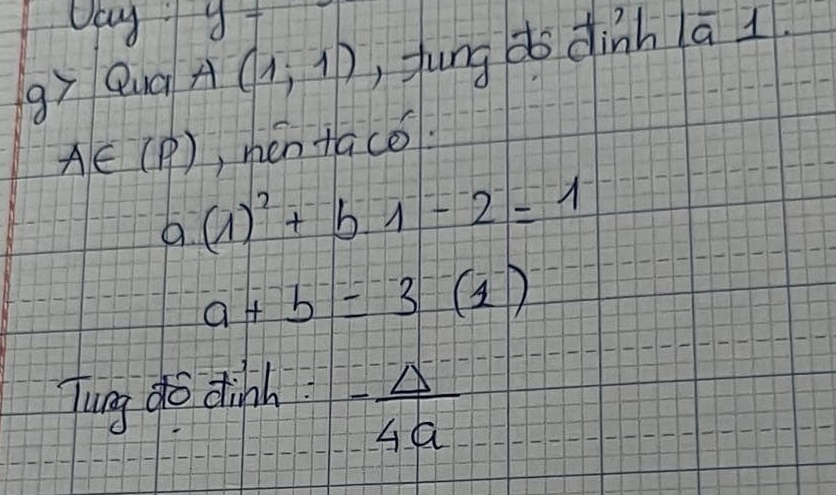 Vậy: y =
g> Qua A (1; 1), tung độ đỉnh là 1.
A ∈ (P), nên ta có:
a.(1)² + b.1 - 2 = 1
a + b = 3 (1)
Tung độ đỉnh: -Δ/4a